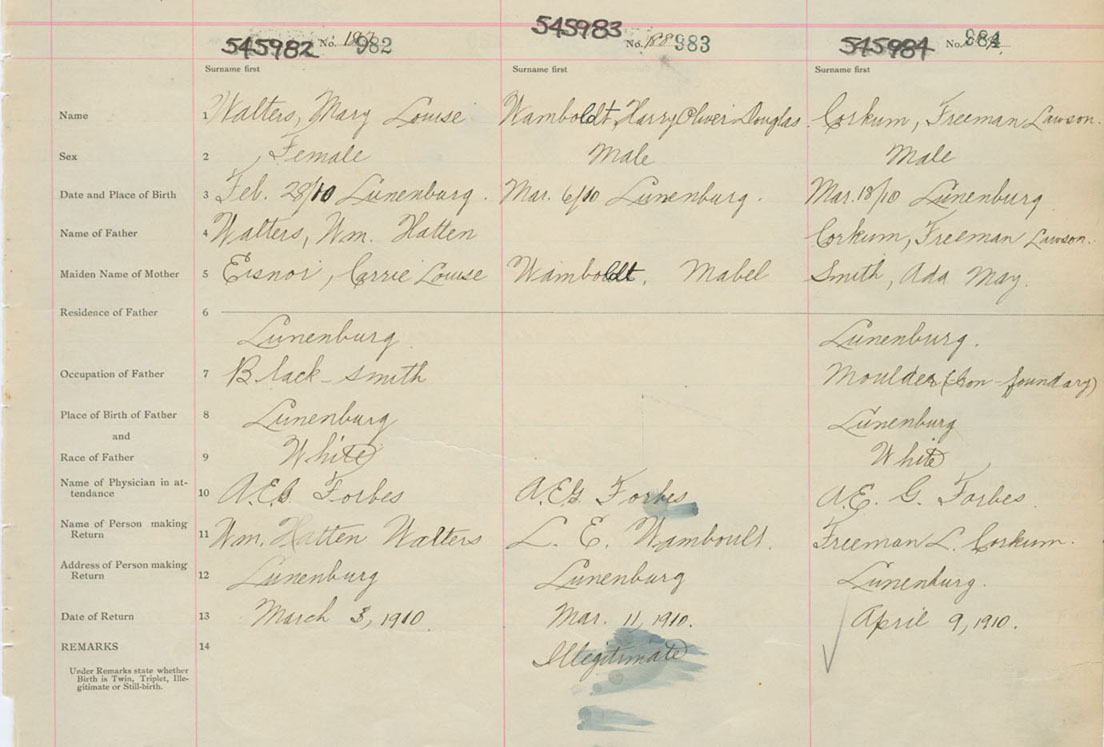 545982 No. 982 545983 No. 188 983 545984 No. 984
Surname first Surname first Surname first
Name 1 Walters, Mary Louise Wamboldt, Harry Oliver Douglas. Corkum, Freeman Lawson.
Sex 2 Female Male Male
Date and Place of Birth 3 Feb. 28/10 Lunenburg. Mar. 6/10 Lunenburg. Mar. 18/10 Lunenburg
Name of Father 4 Walters, Wm. Hatten Corkum, Freeman Lawson.
Maiden Name of Mother 5 Eisnor, Carrie Louise Wamboldt, Mabel Smith, Ada May.
Residence of Father 6
Lunenburg. Lunenburg.
Occupation of Father 7 Black-smith Moulder (Iron-foundary)
Place of Birth of Father 8 Lunenburg Lunenburg
and
Race of Father 9 White White
Name of Physician in at-
tendance 10 A.E.G. Forbes A.E.G. Forbes A.E. G. Forbes.
Name of Person making
Return 11 Wm. Hatten Walters L. E. Wamboult. Freeman L. Corkum.
Address of Person making
Return 12 Lunenburg Lunenburg Lunenburg.
Date of Return 13 March 3, 1910. Mar. 11, 1910. April 9, 1910.
REMARKS 14 Illegitimate
Under Remarks state whether
Birth is Twin, Triplet, Ille-
gitimate or Still-birth.